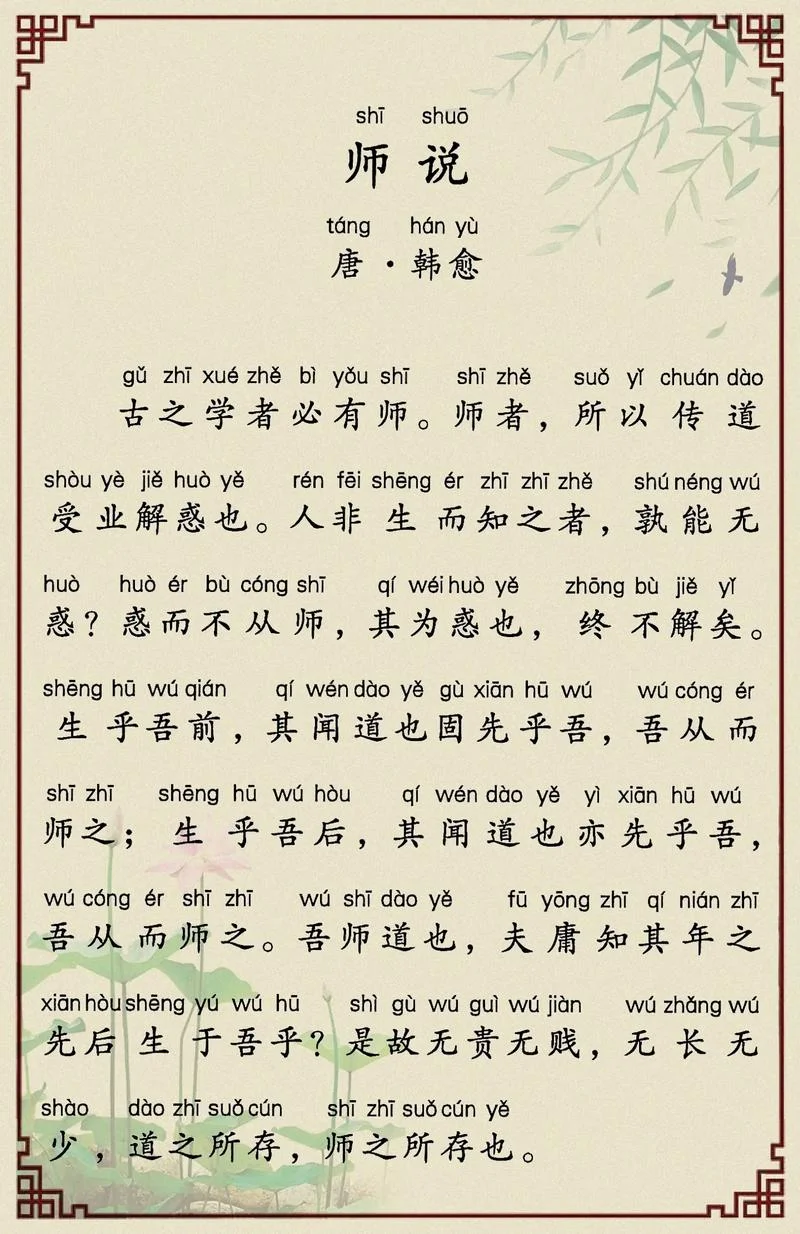 shī shuō
师说
táng hán yù
唐·韩愈
gǔ zhī xué zhě bì yǒu shī shī zhě suǒ yǐ chuán dào
古之学者必有师。师者，所以传道
shòu yè jiě huò yě rén fēi shēng ér zhī zhī zhě shú néng wú
受业解惑也。人非生而知之者，孰能无
huò huò ér bù cóng shī qí wéi huò yě zhōng bù jiě yǐ
惑？惑而不从师，其为惑也，终不解矣。
shēng hū wú qián qí wén dào yě gù xiān hū wú wú cóng ér
生乎吾前，其闻道也固先乎吾，吾从而
shī zhī shēng hū wú hòu qí wén dào yě yì xiān hū wú
师之；生乎吾后，其闻道也亦先乎吾，
wú cóng ér shī zhī wú shī dào yě fū yōng zhī qí nián zhī
吾从而师之。吾师道也，夫庸知其年之
xiān hòu shēng yú wú hū shì gù wú guì wú jiàn wú zhǎng wú
先后生于吾乎？是故无贵无贱，无长无
shào dào zhī suǒ cún shī zhī suǒ cún yě
少，道之所存，师之所存也。